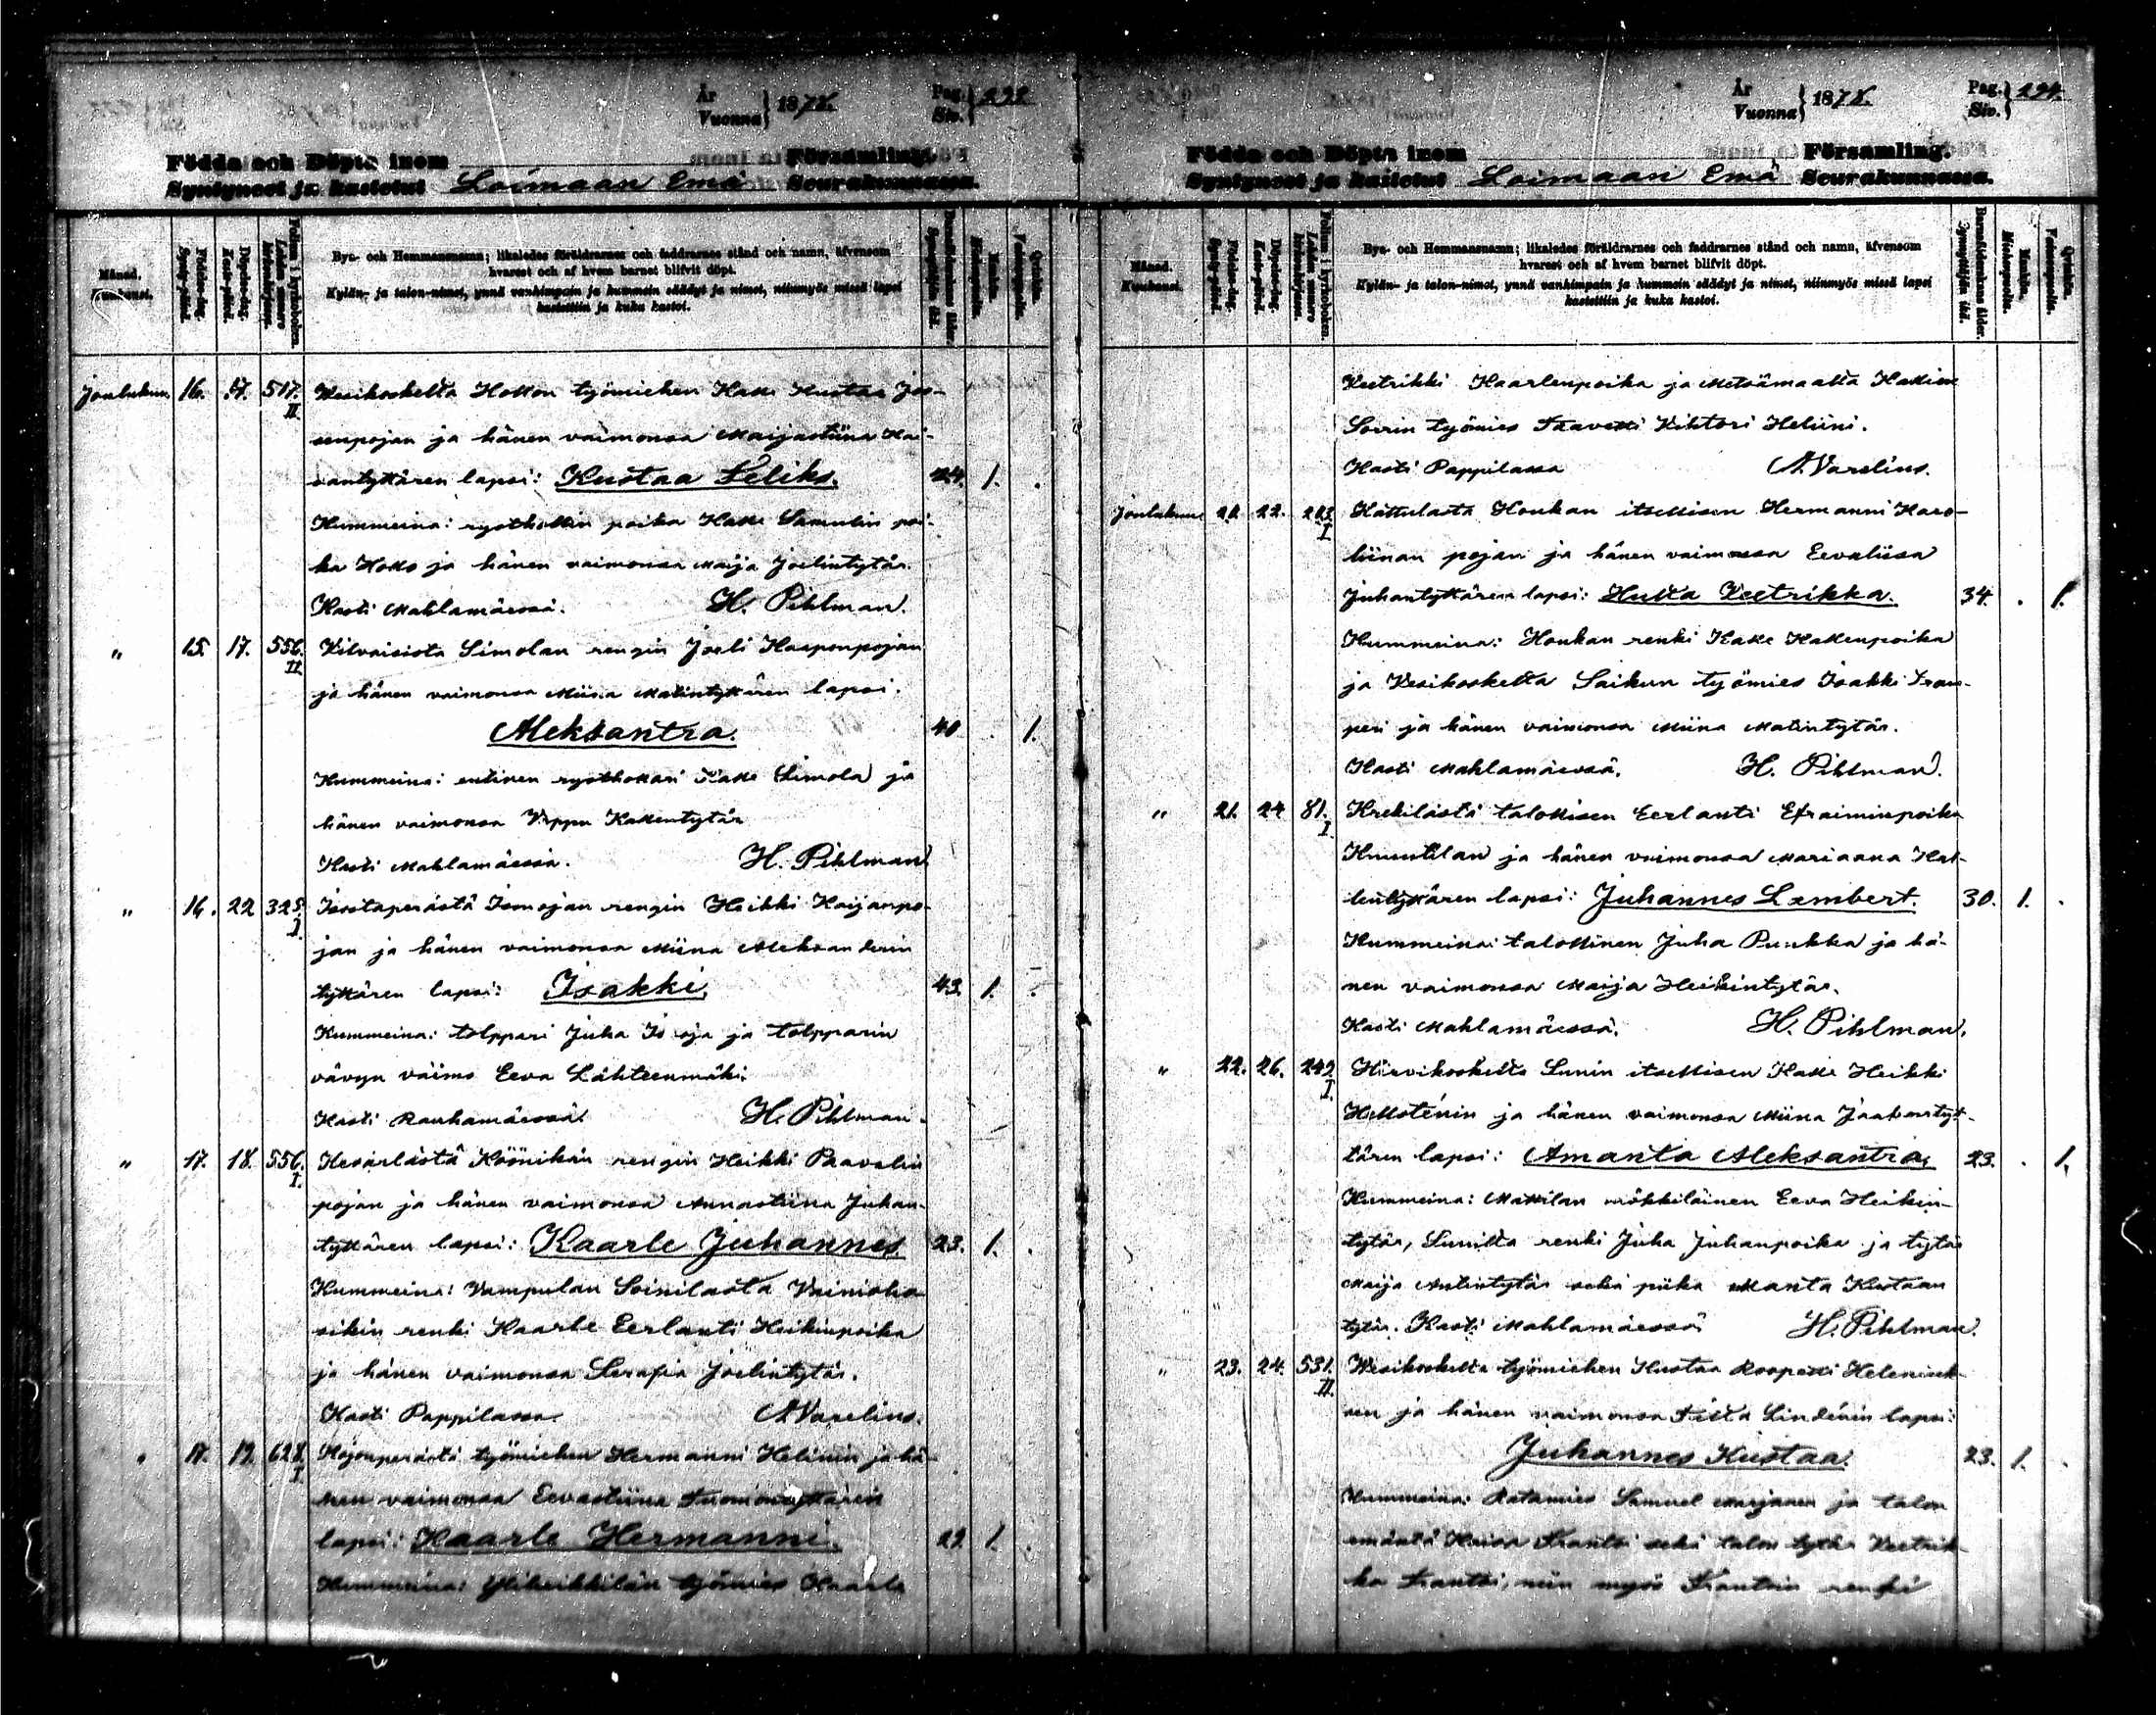 År
Vuonna } 1878. Pag.
Siv. } 293
Födda och Döpta inom Församling.
Syntyneet ja kastetut Loimaan Emä Seurakunnassa.
Månad.
Kuukausi.
Födelse-dag.
Synty-päivä.
Döpelse-dag.
Kaste-päivä.
Folium i kyrkoboken.
Lehden numero kirkonkirjassa.
Bys- och Hemmansnamn; likaledes föräldrarnes och faddrarnes stånd och namn, äfvensom
hvarest och af hvem barnet blifvit döpt.
Kylän- ja talon-nimet, ynnä vanhimpain ja kummein säädyt ja nimet, niinmyös missä lapsi
kastettiin ja kuka kastoi.
Barnaföderskans ålder.
Synnyttäjän ikä.
Mankön.
Miehenpuolia.
Qvinkön.
Vaimonpuolia.
Joulukuu 16. 17. 517. II. Wesikoskelta Hollon työmiehen Kalle Kustaa Joo-
senpojan ja hänen vaimonsa Maijastiina Kai-
santyttären lapsi: Kustaa Feliks. 24. 1. .
Kummeina: rysthollin poika Kalle Samulin poi-
ka Hollo ja hänen vaimonsa Maija Joelintytär.
Kasti Mahlamäessä. H. Pihlman.
" 15. 17. 556. II. Kilvaisista Simolan rengin Joeli Kasponpojan
ja hänen vaimonsa Miina Matintyttären lapsi.
Aleksantra. 40 . 1.
Kummeina: entinen rysthollari Kalle Simola ja
hänen vaimonsa Vappu Kallentytär
Kasti Mahlamäessä. H. Pihlman
" 16. 22 325. I. Isostaperästä Isonojan rengin Heikki Kaijanpo-
jan ja hänen vaimonsa Miina Aleksanderin
tyttären lapsi: Isakki. 43. 1. .
Kummeina: tolppari Juha Isoja ja tolpparin
vävyn vaimo Eeva Lähteenmäki.
Kasti Rauhamäessä. H. Pihlman.
" 17. 18. 556. I. Kesärlästä Köönikän rengin Heikki Paavalin
pojan ja hänen vaimonsa Annastiina Juhan-
tyttären lapsi: Kaarle Juhannes 23. 1. .
Kummeina: Vampulan Soinilasta
renki Kaarle Eerlanti Heikinpoika
ja hänen vaimonsa Serafia Joelintytär.
Kasti Pappilassa. A. Varelius.
" 17. 19. 628. I. Kojonperästä työmiehen Hermanni Helinin ja hä-
nen vaimonsa Eevastiina Tuomontyttären
lapsi: Kaarle Hermanni. 29. 1. .
Kummeina: Yliheikkilän työmies Kaarle
År
Vuonna } 1878. Pag.
Siv. } 294.
Födda och Döpta inom Församling.
Syntyneet ja kastetut Loimaan Emä Seurakunnassa.
Månad.
Kuukausi.
Födelse-dag.
Synty-päivä.
Döpelse-dag.
Kaste-päivä.
Folium i kyrkoboken.
Lehden numero kirkonkirjassa.
Bys- och Hemmansnamn; likaledes föräldrarnes och faddrarnes stånd och namn, äfvensom
hvarest och af hvem barnet blifvit döpt.
Kylän- ja talon-nimet, ynnä vanhimpain ja kummein säädyt ja nimet, niinmyös missä lapsi
kastettiin ja kuka kastoi.
Barnaföderskans ålder.
Synnyttäjän ikä.
Mankön.
Miehenpuolia.
Qvinkön.
Vaimonpuolia.
Veetrikki Kaarlenpoika ja Metsämaalta
Sorrin työmies Taavetti Vihtori Heliini.
Kasti Pappilassa A. Varelius.
Joulukuu 22. I. Kättulasta Honkan itsellisen Hermanni Karo-
liinan pojan ja hänen vaimonsa Eevaliisa
Juhantyttären lapsi: Hulta Veetrikka. 34. . 1.
Kummeina: Honkan renki Kalle Kallenpoika
ja Vesikoskelta Saikun työmies Isakki Fram-
peri ja hänen vaimonsa Miina Matintytär.
Kasti Mahlamäessä. H. Pihlman.
" 21. 24 81. I. Krekilästä talollisen Eerlanti Efraiminpoika
Knuutilan ja hänen vaimonsa Mariaana Kal-
lentyttären lapsi: Juhannes Lambert. 30. 1. .
Kummeina: talollinen Juha Punkka ja hä-
nen vaimonsa Maija Heikintytär.
Kasti Mahlamäessä. H. Pihlman.
" 22. 26. 249. I. Hirvikoskelta Sunin itsellisen Kalle Heikki
Hellsténin ja hänen vaimonsa Miina Jaakontyt-
tären lapsi: Amanta Aleksantra. 23. . 1.
Kummeina: Mattilan mökkiläinen Eeva Heikin-
tytär, Sunilta renki Juha Juhanpoika ja tytär
Maija Antintytär sekä piika Manta Kustaan
tytär. Kasti Mahlamäessä H. Pihlman.
" 23. 24. 531. II. Wesikoskelta työmiehen Kustaa Roopetti Heleniuk-
sen ja hänen vaimonsa Fiilla Lindénin lapsi:
Juhannes Kustaa. 23. 1. .
Kummeina: Ratamies Samuel Marjanen ja talon
emäntä Kaisa Frantsi sekä talon tytär Veetrik-
ka Frantsi, niin myös Frantsin renki